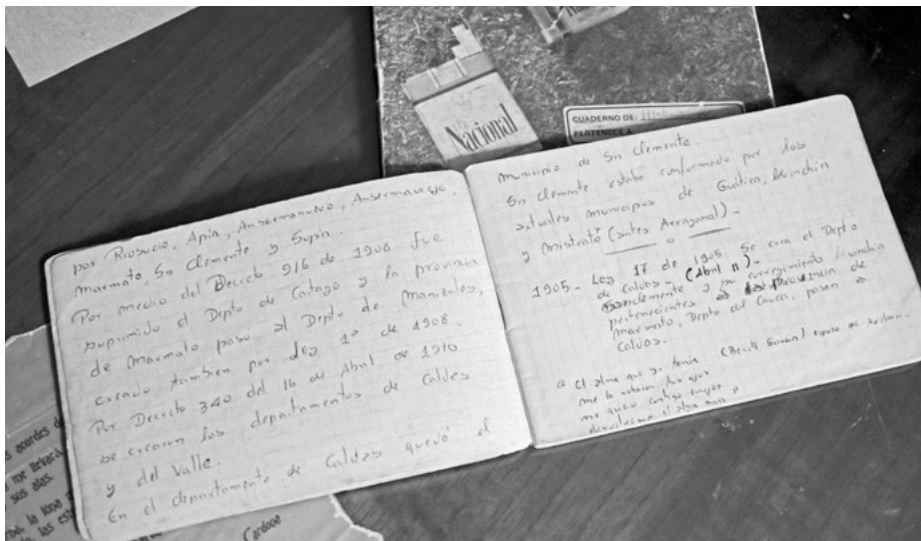 Nacional
CUADERNO DE:
PERTENECE A:
por Riosucio, Apia, Ansermanuevo, Ansermaviejo,
Marmato, Sn Clemente y Supia.
Por medio del Decreto 916 de 1908 fue
suprimido el Depto de Cartago y la provincia
de Marmato pasó al Depto de Manizales,
creado tambien por Ley 1ª de 1908.
Por Decreto 340 del 16 de Abril de 1910
se crearon los departamentos de Caldas
y del Valle.
En el departamento de Caldas quedó el
municipio de Sn Clemente.
Sn Clemente estaba conformado por los
actuales municipios de Guática, Quinchía
y Mistrató (antes Arrayanal) -
1905 - Ley 17 de 1905 Se crea el Depto
de Caldas - (Abril 11) -
Sanclemente y corregimiento Quinchía
pertenecientes a Provincia de
Marmato, Depto del Cauca, pasan a
Caldas.
El alma que yo tenía (Benito
me la robaron tus ojos
no quiero contigo enojos
devolveme el alma mia
acordes de
me llevará
sus alas.
la luna
las est
Cardona